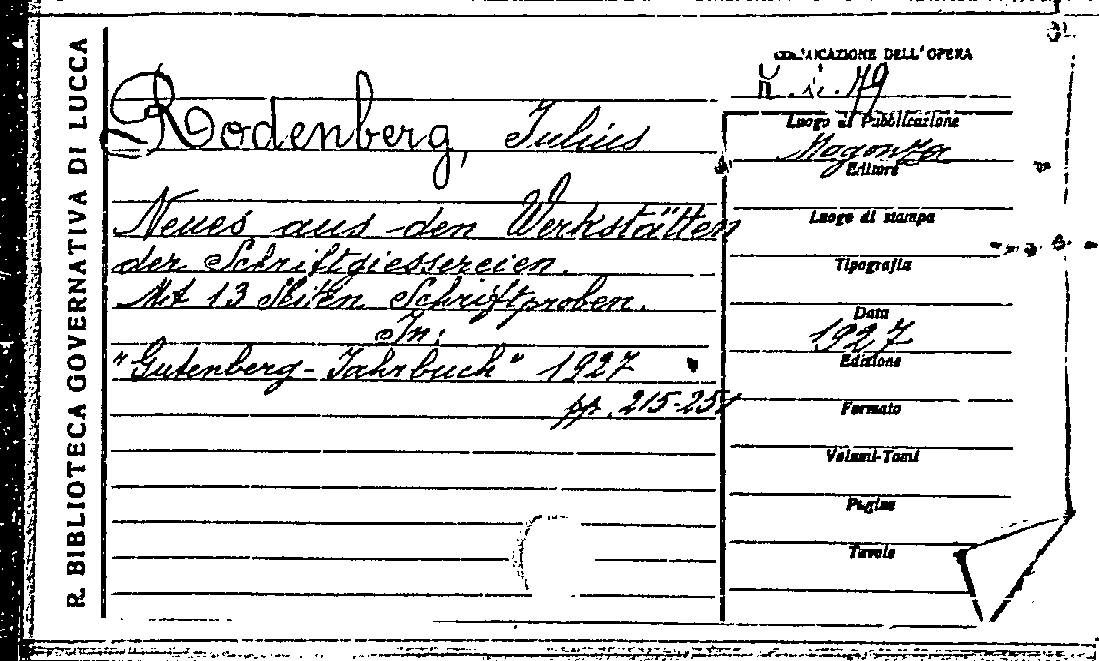 R. BIBLIOTECA GOVERNATIVA DI LUCCA
Rodenberg, Julius
Neues aus den Werkstätten
der Schriftgiessereien.
Mit 13 Seiten Schriftproben.
In:
"Gutenberg-Jahrbuch" 1927
pp. 215-251
COLLOCAZIONE DELL'OPERA
Luogo di Pubblicazione
Magonza
Editore
Luogo di stampa
Tipografia
Data
1927
Edizione
Formato
Volumi-Tomi
Pagine
Tavole